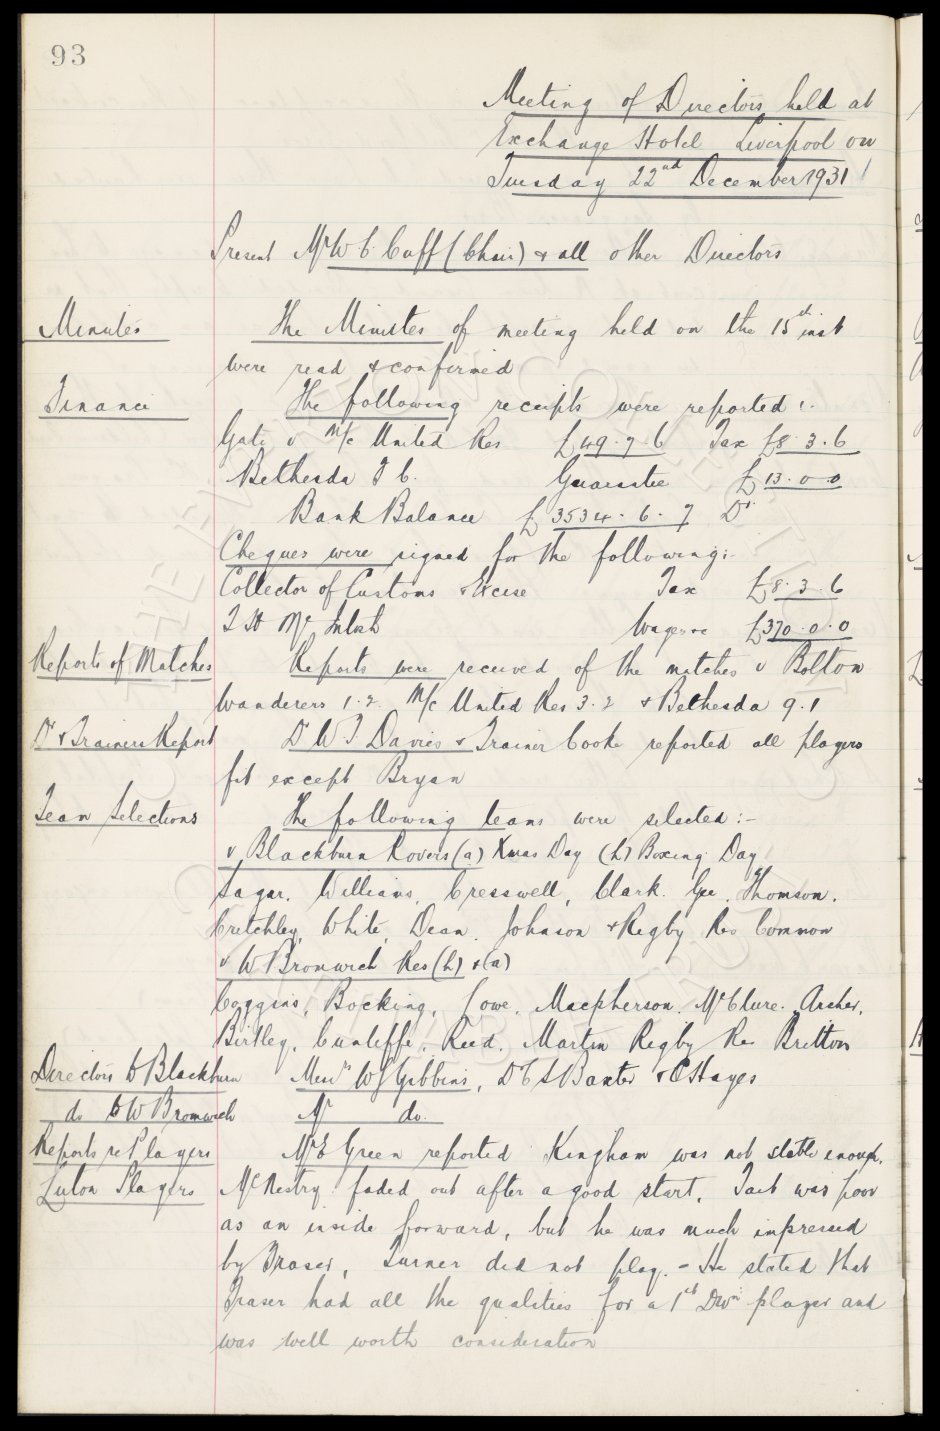 93
Meeting of Directors held at
Exchange Hotel Liverpool on
Tuesday 22nd December 1931
Present Mr W C Cuff (Chair) & all other Directors
Minutes The Minutes of meeting held on the 15th inst
were read & confirmed
Finance The following receipts were reported :-
Gate v M/c United Res £49.7.6 Tax £8.3.6
Bethesda F C. Guarantee £13.0.0
Bank Balance £3534.6.7 Dr
Cheques were signed for the following:-
Collector of Customs & Excise Tax £8.3.6
T H McIntosh Wages &c £370.0.0
Reports of Matches Reports were received of the matches v Bolton
Wanderers 1.2. M/c United Res 3.2 & Bethesda 9.1
Dr & Trainers Report Dr W J Davies & Trainer Cooke reported all players
fit except Bryan
Team Selections The following teams were selected :-
v Blackburn Rovers (a) Xmas Day (h) Boxing Day
Sagar. Williams, Cresswell, Clark. Gee. Thomson.
Critchley, White, Dean. Johnson & Rigby Res Common
v W Bromwich Res (h) & (a)
Coggins, Bocking, Lowe, Macpherson. McClure. Archer.
Birtley, Cunliffe, Reed. Martin Rigby Res Britton
Directors to Blackburn Messrs W J Gibbins, Dr C S Baxter & C Hayes
do to W Bromwich Mr do.
Reports re Players Mr E Green reported Kingham was not stable enough.
Luton Players McNestry faded out after a good start. Tait was poor
as an inside forward, but he was much impressed
by Fraser, Turner did not play. - He stated that
Fraser had all the qualities for a 1st Divn player and
was well worth consideration